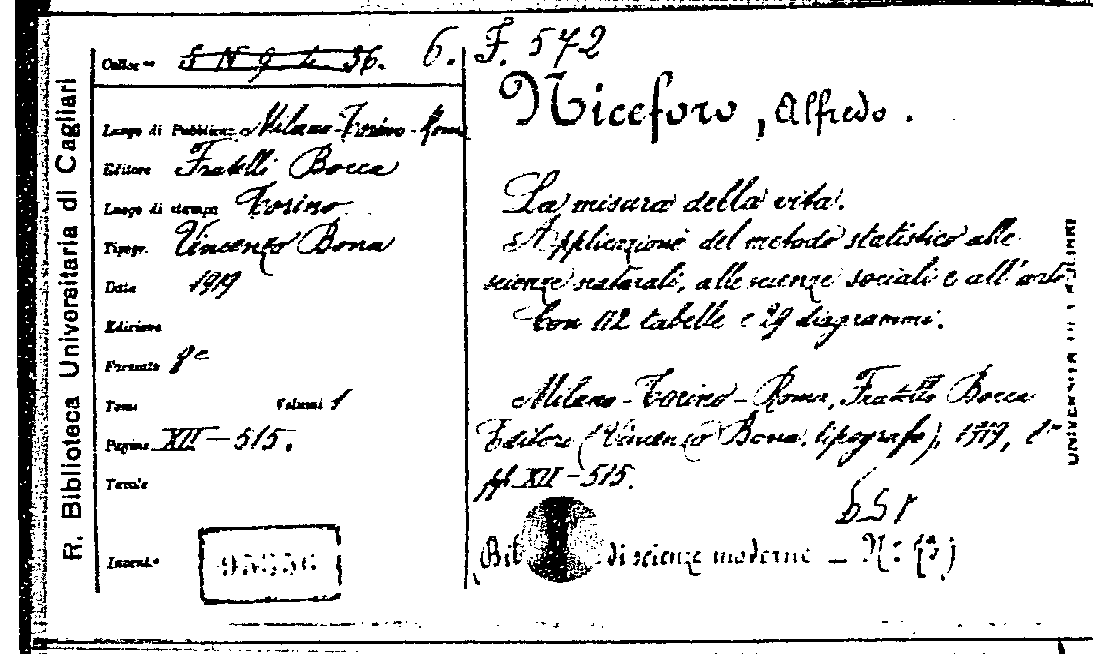 R. Biblioteca Universitaria di Cagliari
Colloc.ne S N 9 4. 36. 6. F. 572
Luogo di Pubblicaz. Milano-Torino-Roma
Editore Fratelli Bocca
Luogo di stampa Torino
Tipogr. Vincenzo Bona
Data 1919
Edizione
Formato 8°
Tomo Volumi 1
Pagine XII-515.
Tavole
Invent.°
Niceforo, Alfredo.
La misura della vita.
Applicazione del metodo statistico alle
scienze naturali, alle scienze sociali e all'arte
Con 112 tabelle e 29 diagrammi.
Milano-Torino-Roma, Fratelli Bocca
Editori (Vincenzo Bona, tipografo), 1919, 8°
pp. XII-515.
(Bib di scienze moderne - N:
UNIVERSITÀ DI CAGLIARI